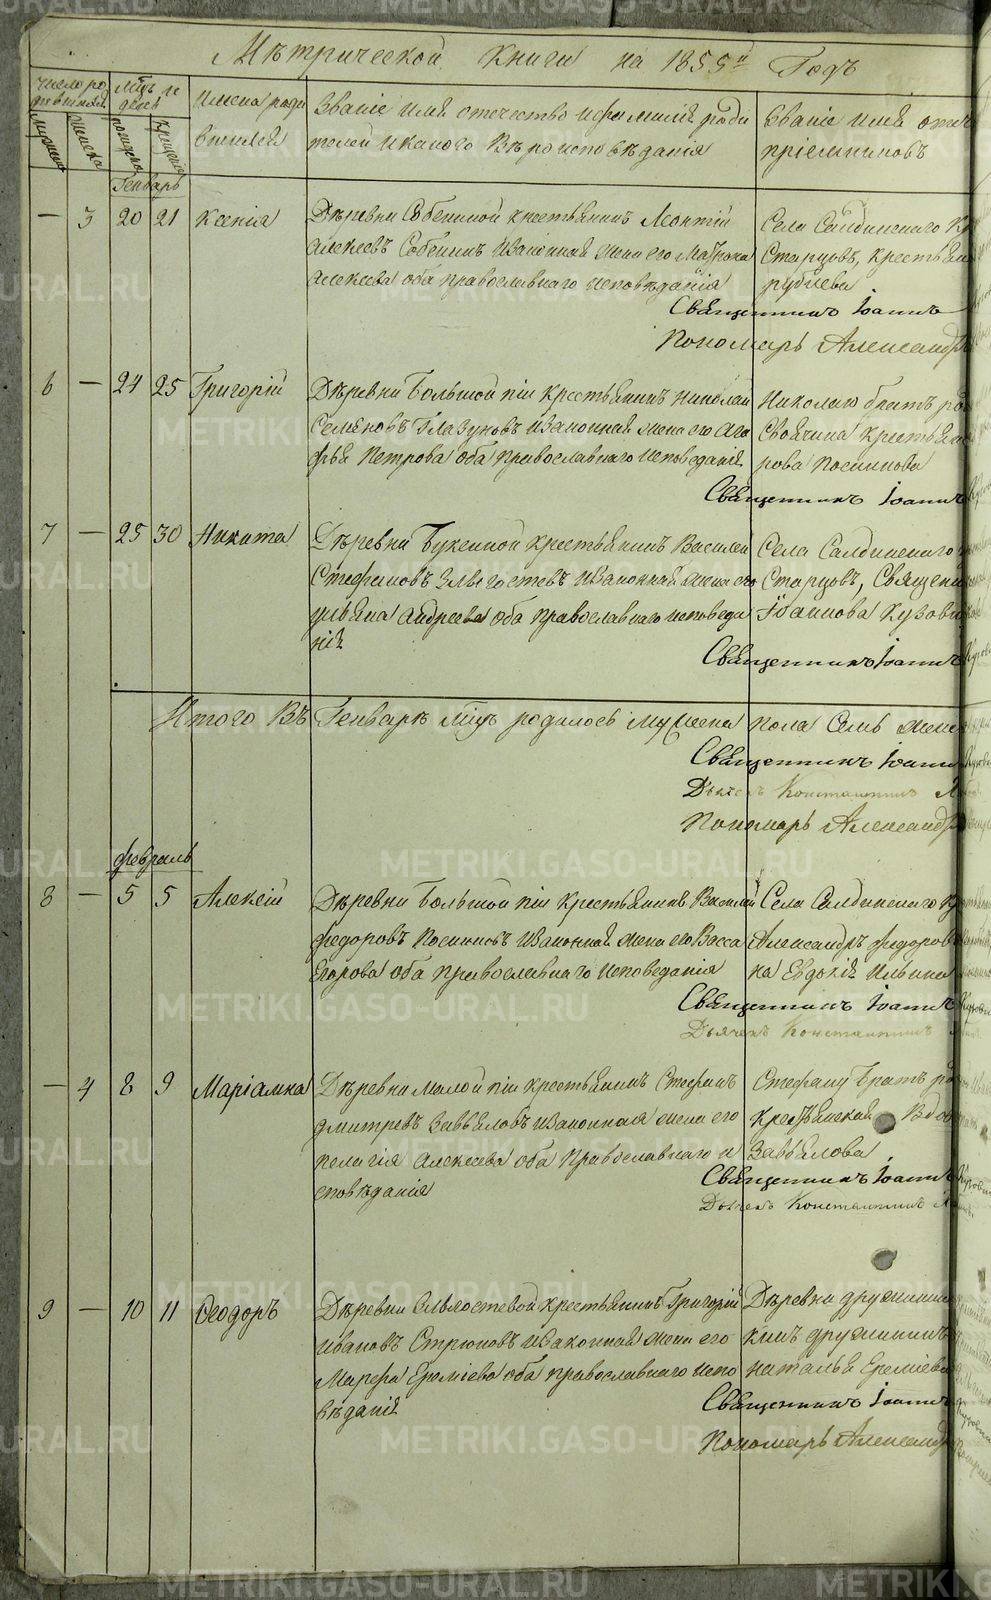 Мѣтрической книги на 1855й Годъ
число родившихся
Мцъ и день
Имена родившихся
Званіе имя отечество и фамилія родителей и какого Вѣроисповѣданія
Званіе имя отеч
пріемниковъ
мужеска
женска
рожденія
крещенія
Генварь
— 3 20 21 Ксенія
Дѣревни Собениной крестьянинъ Леонтій
Алексѣевъ Собенинъ и законная жена его Матрона
Алексѣева оба православнаго исповѣданія
Села Салдинскаго К
Старцовъ, крестьян
Священникъ Іоаннъ
Пономарь Александръ
6 — 24 25 Григорій
Дѣревни Большой піи Крестьянинъ Николай
Семеновъ Глазуновъ и законная жена его Ага
фья Петрова оба православнаго исповеданія
Николаю братъ ро
крестьян
рова Посникова
Священникъ Іоаннъ
7 — 25 30 Никита
Дѣревни Буксиной крестьянинъ Василей
Стефановъ и законная жена его
Ульяна Андреева оба православнаго исповеда
нія
Села Салдинскаго
Старцовъ, Священ
Іоаннова Кузов
Священникъ Іоаннъ
Итого Въ Генварѣ мцѣ родилось мужеска пола Семь жен
Священникъ Іоаннъ
Дьячекъ Константинъ
Пономарь Александръ
февраль
8 — 5 5 Алексій
Дѣревни Большой піи Крестьянинъ Василей
Федоровъ Посниковъ и законная жена его Васса
Егорова оба православнаго исповеданія
Села Салдинскаго К
Александръ Федоров
на Евдокія Ильина
Священникъ Іоаннъ
Дьячекъ Константинъ
— 4 8 9 Маріамна
Дѣревни Малой піи крестьянинъ Стефанъ
Дмитревъ Завьяловъ и законная жена его
Пелагія Алексѣева оба православнаго и
споведанія
Стефану братъ ро
Крестьянская Вдов
Завьялова
Священникъ Іоаннъ
Дьячекъ Константинъ
9 — 10 11 Ѳеодоръ
Дѣревни крестьянинъ Григорій
Ивановъ Стрюковъ и законная жена его
Марфа Еремѣева оба православнаго испо
вѣданія
Дѣревни дружинин
кинъ дружининъ
Наталья Еремѣева
Священникъ Іоаннъ
Пономарь Александръ
METRIKI.GASO-URAL.RU